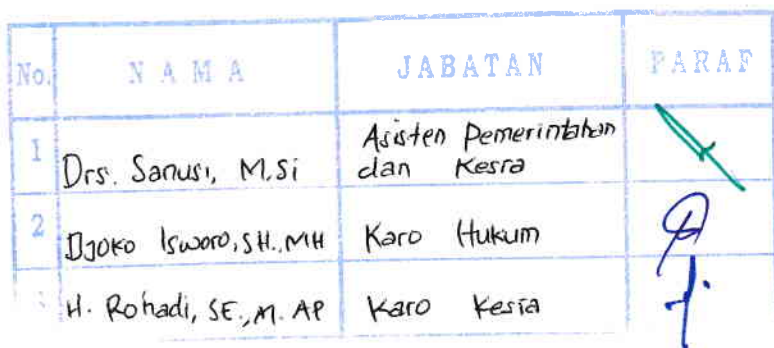 No. N A M A JABATAN PARAF
1 Drs. Sanusi, M.Si Asisten Pemerintahan
dan Kesra
2 Djoko Isworo, SH., MH Karo Hukum
3 H. Rohadi, SE., M. AP Karo Kesra